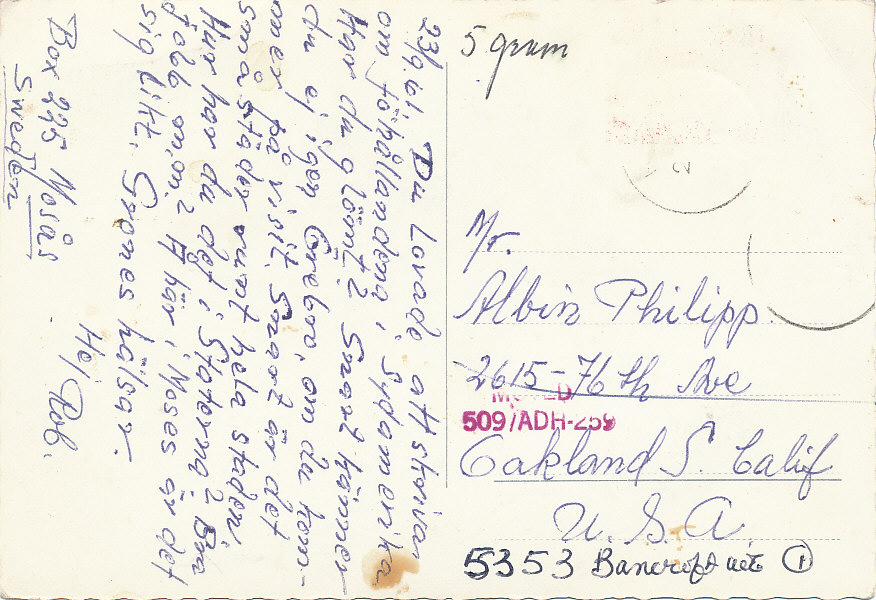 23/9.61. Du lovade att skriva
om föhållandena i Sydamerika
Har du glömt? Snart känner
du ej igen Örebro, om du kom-
mer på visit. Snart är det
småstäder runt hela staden.
Hur har du det i Staterna? Bra
jobb m.m.? Här i Mosås är det
sig likt. Grones hälsar.
Hej Rob.
Box 225 Mosås
Sweden
5 gram
Mr.
Albin Philipp
2615-76 th Ave
MOVED
509/ADH-259
Oakland 5. Calif
U.S.A.
5353 Bancroft ave 1